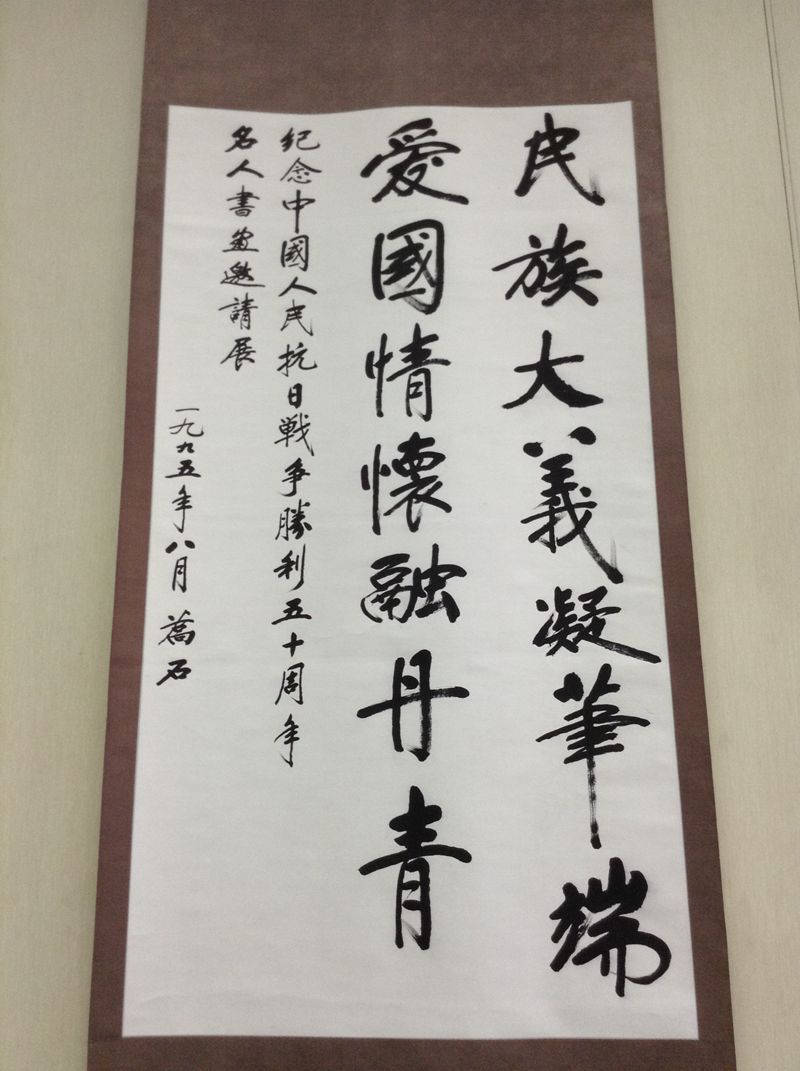 民族大義凝筆端
愛國情懷融丹青
紀念中國人民抗日戰争勝利五十周年
名人書畫邀請展
一九九五年八月 喬石